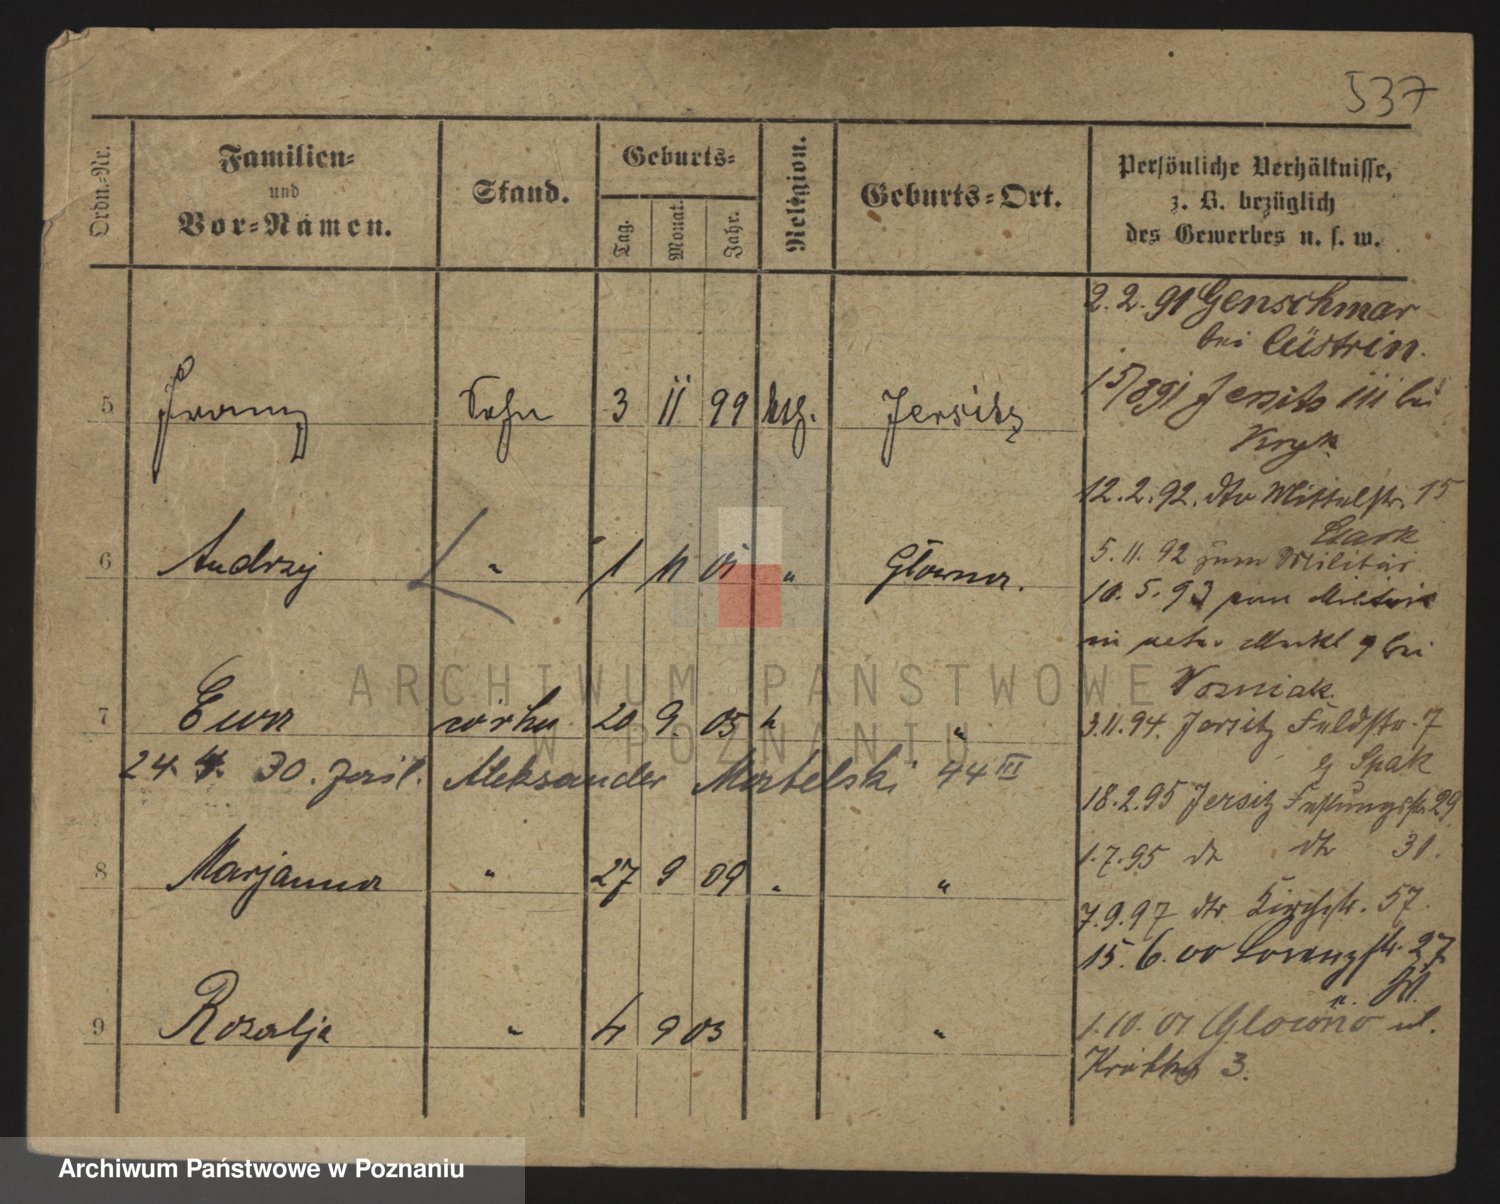 537
Ordn.-Nr.
Familien-
und
Vor-Namen.
Stand.
Geburts-
Tag. Monat. Jahr.
Religion.
Geburts-Ort.
Persönliche Verhältnisse,
z. B. bezüglich
des Gewerbes u. s. w.
5 Franz Sohn 3 11 99 Jersitz
6 Andrzej " 1 11 01 " Głowna.
7 Ewa córka 20 9. 05 "
24. 4. 30. Aleksander 44 III
8 Marjanna " 27 9 09 " "
9 Rozalja " 4 9 03 "
2.2.91 Genschmar
bei Cüstrin.
15/8 91 Jersitz III bei
12.2.92. dto Mittelstr. 15
5.11.92 zum Militär
10.5.93 Militär
bei
Wozniak
3.11.94. Jersitz Feldstr. 7
Spak
18.2.95 Jersitz Festungsstr. 29
1.7.95 dto dto 31.
7.9.97 dto Kirchstr. 57.
15.6.00 Lorenzstr. 27
1.10.01 Głowno ul.
Krótka 3.
ARCHIWUM PAŃSTWOWE
W POZNANIU
Archiwum Państwowe w Poznaniu